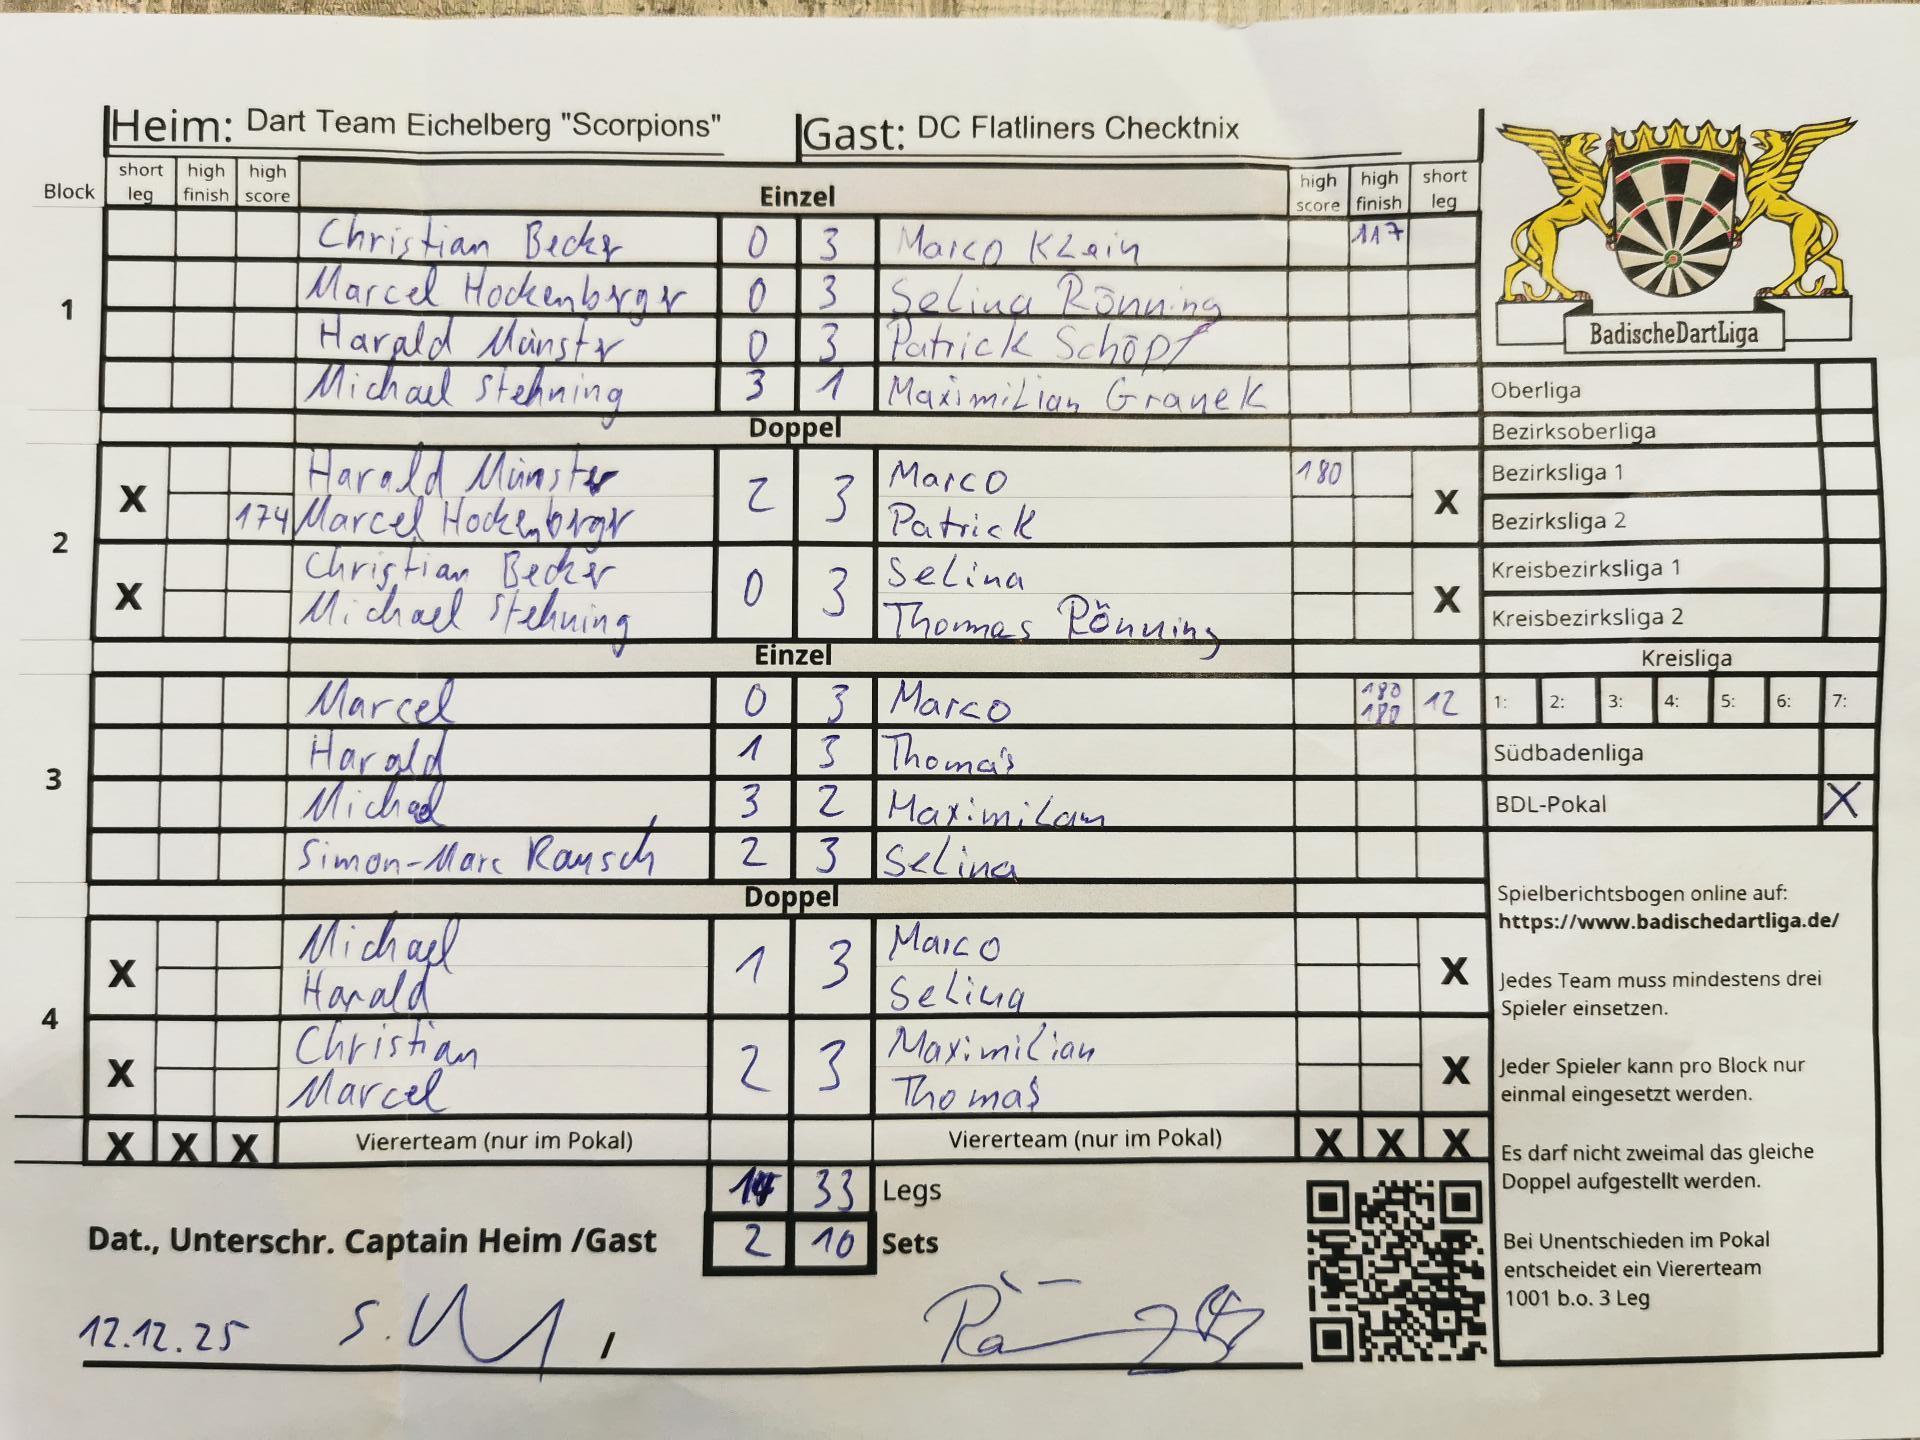 Heim: Dart Team Eichelberg "Scorpions" Gast: DC Flatliners Checktnix
Block short leg high finish high score Einzel high score high finish short leg
1
Christian Becker 0 3 Marco Klein 117
Marcel Hockenberger 0 3 Selina Rönning
Harald Münster 0 3 Patrick Schöpf
Michael Stehning 3 1 Maximilian Granek
Doppel
2
X Harald Münster 2 3 Marco 180 X
174 Marcel Hockenberger Patrick
X Christian Becker 0 3 Selina X
Michael Stehning Thomas Rönning
Einzel
3
Marcel 0 3 Marco 180 180 12
Harald 1 3 Thomas
Michael 3 2 Maximilam
Simon-Marc Rausch 2 3 Selina
Doppel
4
X Michael 1 3 Marco X
Harald Selina
X Christian 2 3 Maximilian X
Marcel Thomas
X X X Viererteam (nur im Pokal) Viererteam (nur im Pokal) X X X
14 33 Legs
Dat., Unterschr. Captain Heim /Gast 2 10 Sets
12.12.25
BadischeDartLiga
Oberliga
Bezirksoberliga
Bezirksliga 1
Bezirksliga 2
Kreisbezirksliga 1
Kreisbezirksliga 2
Kreisliga
1: 2: 3: 4: 5: 6: 7:
Südbadenliga
BDL-Pokal X
Spielberichtsbogen online auf:
https://www.badischedartliga.de/
Jedes Team muss mindestens drei
Spieler einsetzen.
Jeder Spieler kann pro Block nur
einmal eingesetzt werden.
Es darf nicht zweimal das gleiche
Doppel aufgestellt werden.
Bei Unentschieden im Pokal
entscheidet ein Viererteam
1001 b.o. 3 Leg